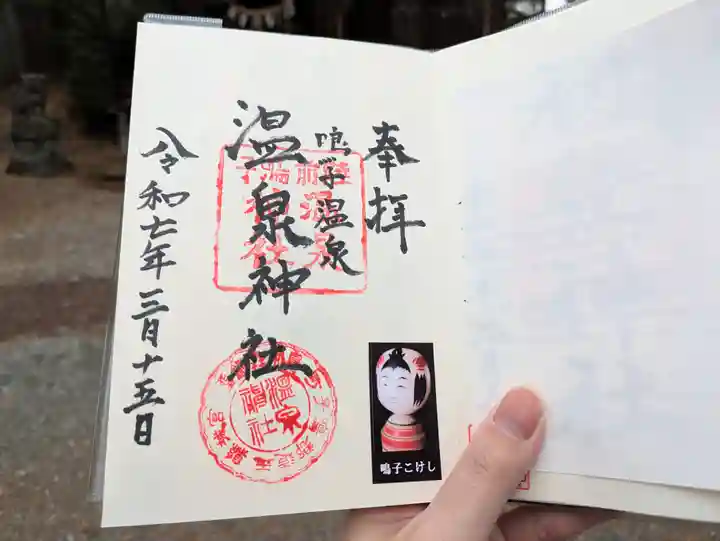 奉拝
鳴子温泉
温泉神社
令和七年三月十五日
鳴子こけし
温泉
神社